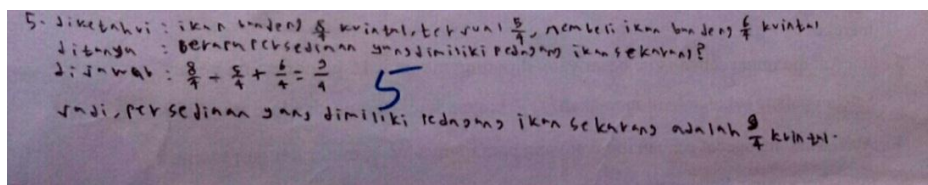 5. diketahui : ikan bandeng 8/4 kvintal, terjual 5/4, membeli ikan bandeng 6/4 kvintal
ditanya : Berapa persedinan yang dimiliki pedagang ikan sekarang?
dijawab : 8/4 - 5/4 + 6/4 = 9/4
5
Jadi, persedinan yang dimiliki pedagang ikan sekarang adalah 9/4 kvintal.